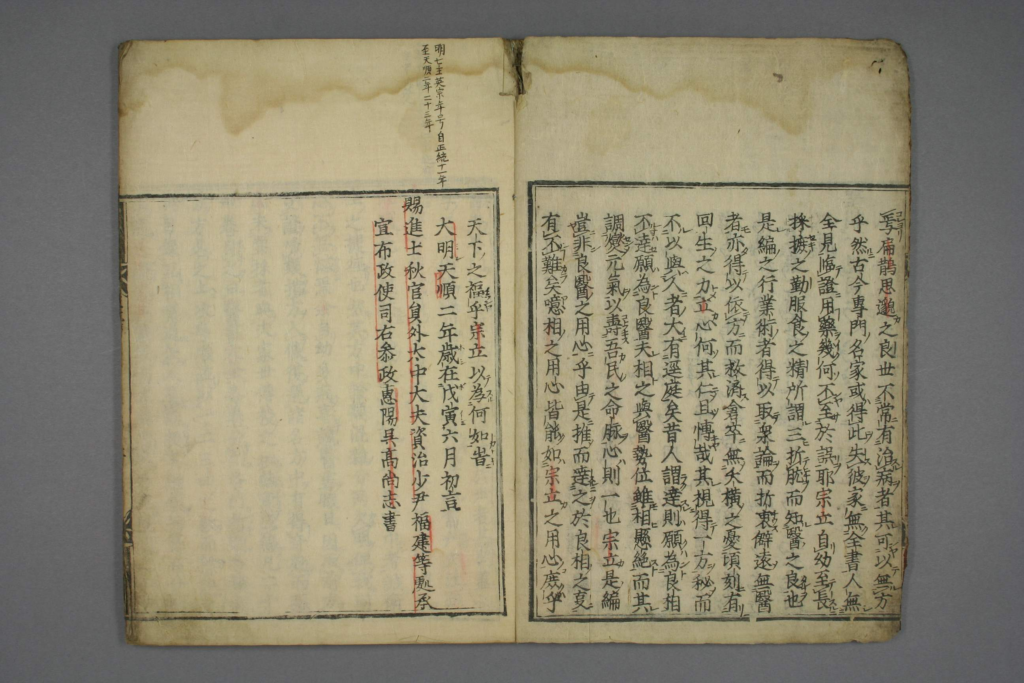 扁鵲思邈之良世不常有治病者其可以無方
乎然古今專門名家或得此失彼家無全書人無
全見臨證用藥幾何不至於誤耶宗立自幼至長
採摭之勤服食之精所謂三折肱而知醫之良也
是編之行業術者得以取衆論而折衷僻遠無醫
者亦得以依方而救濟倉卒無夭橫之憂頃刻有
回生之力立心何其仁且愽哉其視得一方秘而
不以與人者大有逕庭矣昔人謂達則願為良相
不達願為良醫夫相之與醫勢位雖相懸絕而其
調爕元氣以壽吾民之命脉心則一也宗立是編
豈非良醫之用心乎由是推而達之於良相之事
有不難矣噫相之用心皆能如宗立之用心庶乎
明七主英宗年号ノ自正統十一年
至天順二年二十三年
天下之福乎宗立以為何如旹
大明天順二年歲在戊寅六月初吉
賜進士秋官員外太中大夫資治少尹福建等處承
宣布政使司右叅政惠陽吳高尚志書